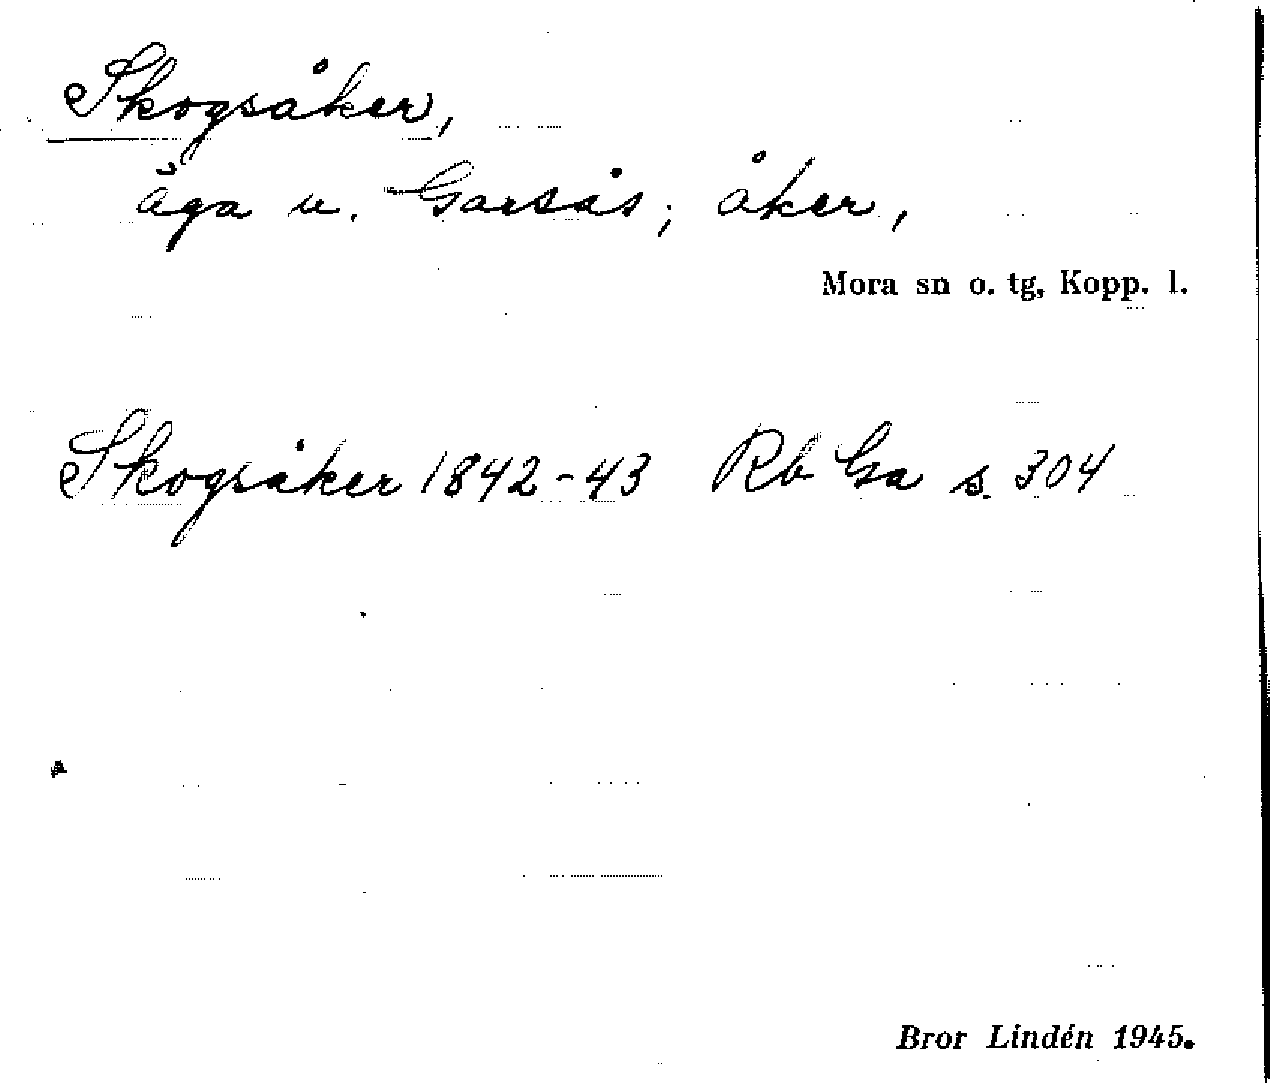 Skogsåker,
äga u. Garsås; åker,
Mora sn o. tg, Kopp. l.
Skogsåker 1842-43 Rb Ga s. 304
Bror Lindén 1945.